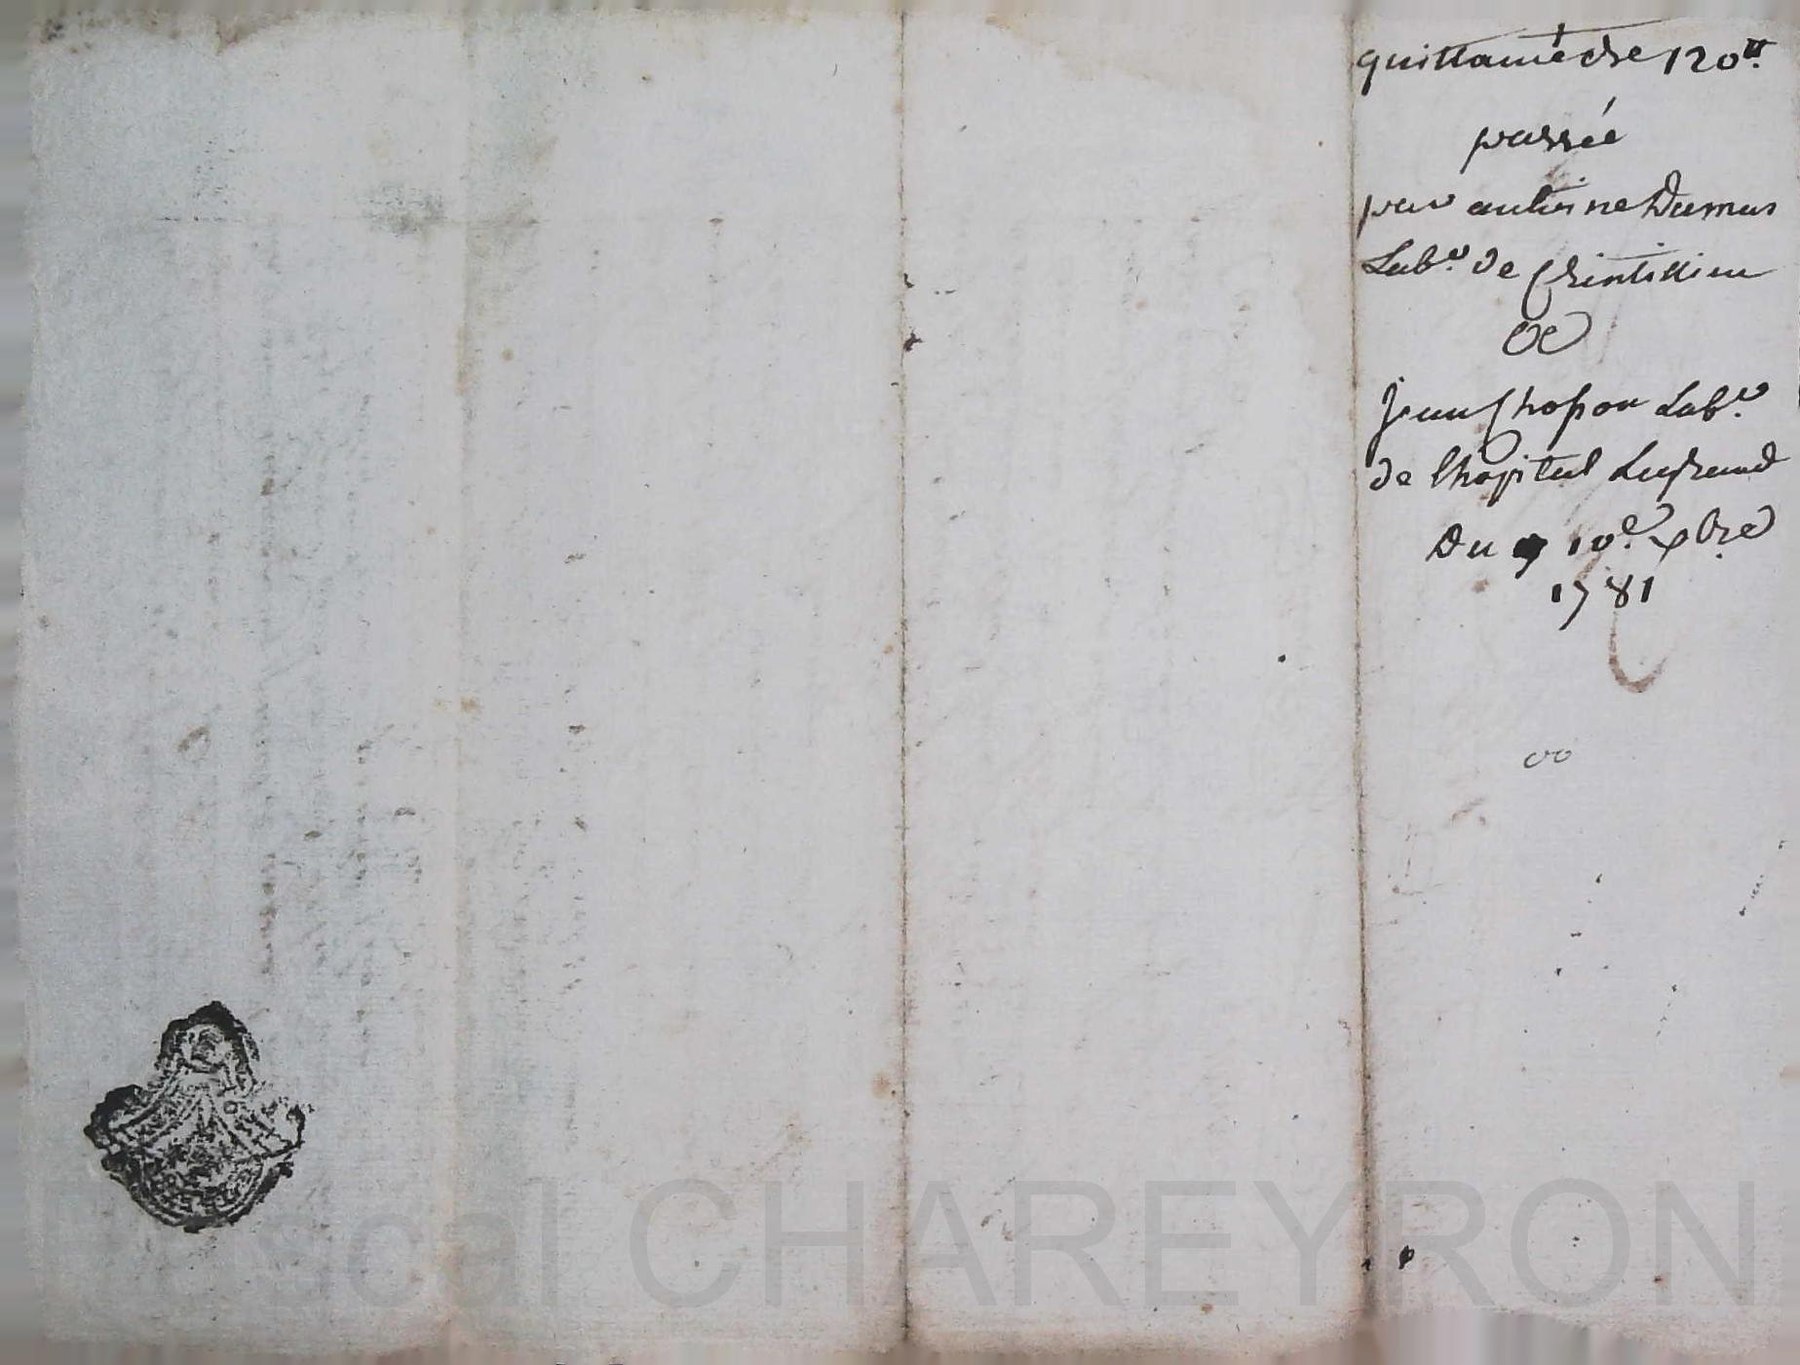 quittance de 120 ₶.
passée
par antoine Dumas
Lab.r de Chintillieu
a
jean Chopon Lab.r
de lhopital Lugrand
Du 10.e xbre
1781
Pascal CHAREYRON